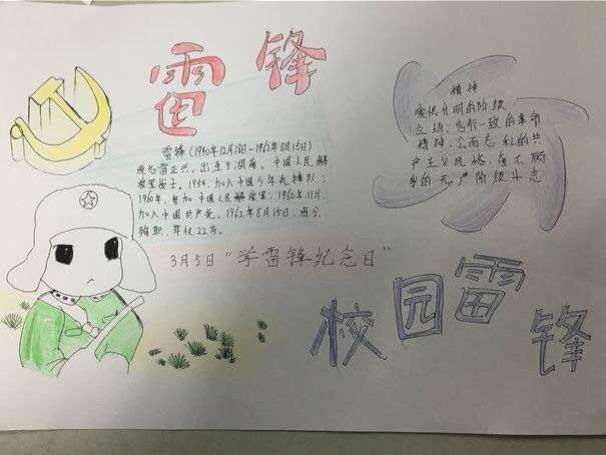 雷锋
雷锋(1940年12月18日—1962年8月15日)
原名雷正兴,出生于湖南,中国人民解
放军战士。1954,加入中国少年先锋队;
1960年,参加中国人民解放军;1960年11月,
加入中国共产党。1962年8月15日,因公
殉职,年仅22岁。
3月5日“学雷锋纪念日”
精神
分明的阶级
立场;言行一致的革命
精神;公而忘私的共
产主义风格;奋不顾
身的无产阶级斗志
校园雷锋